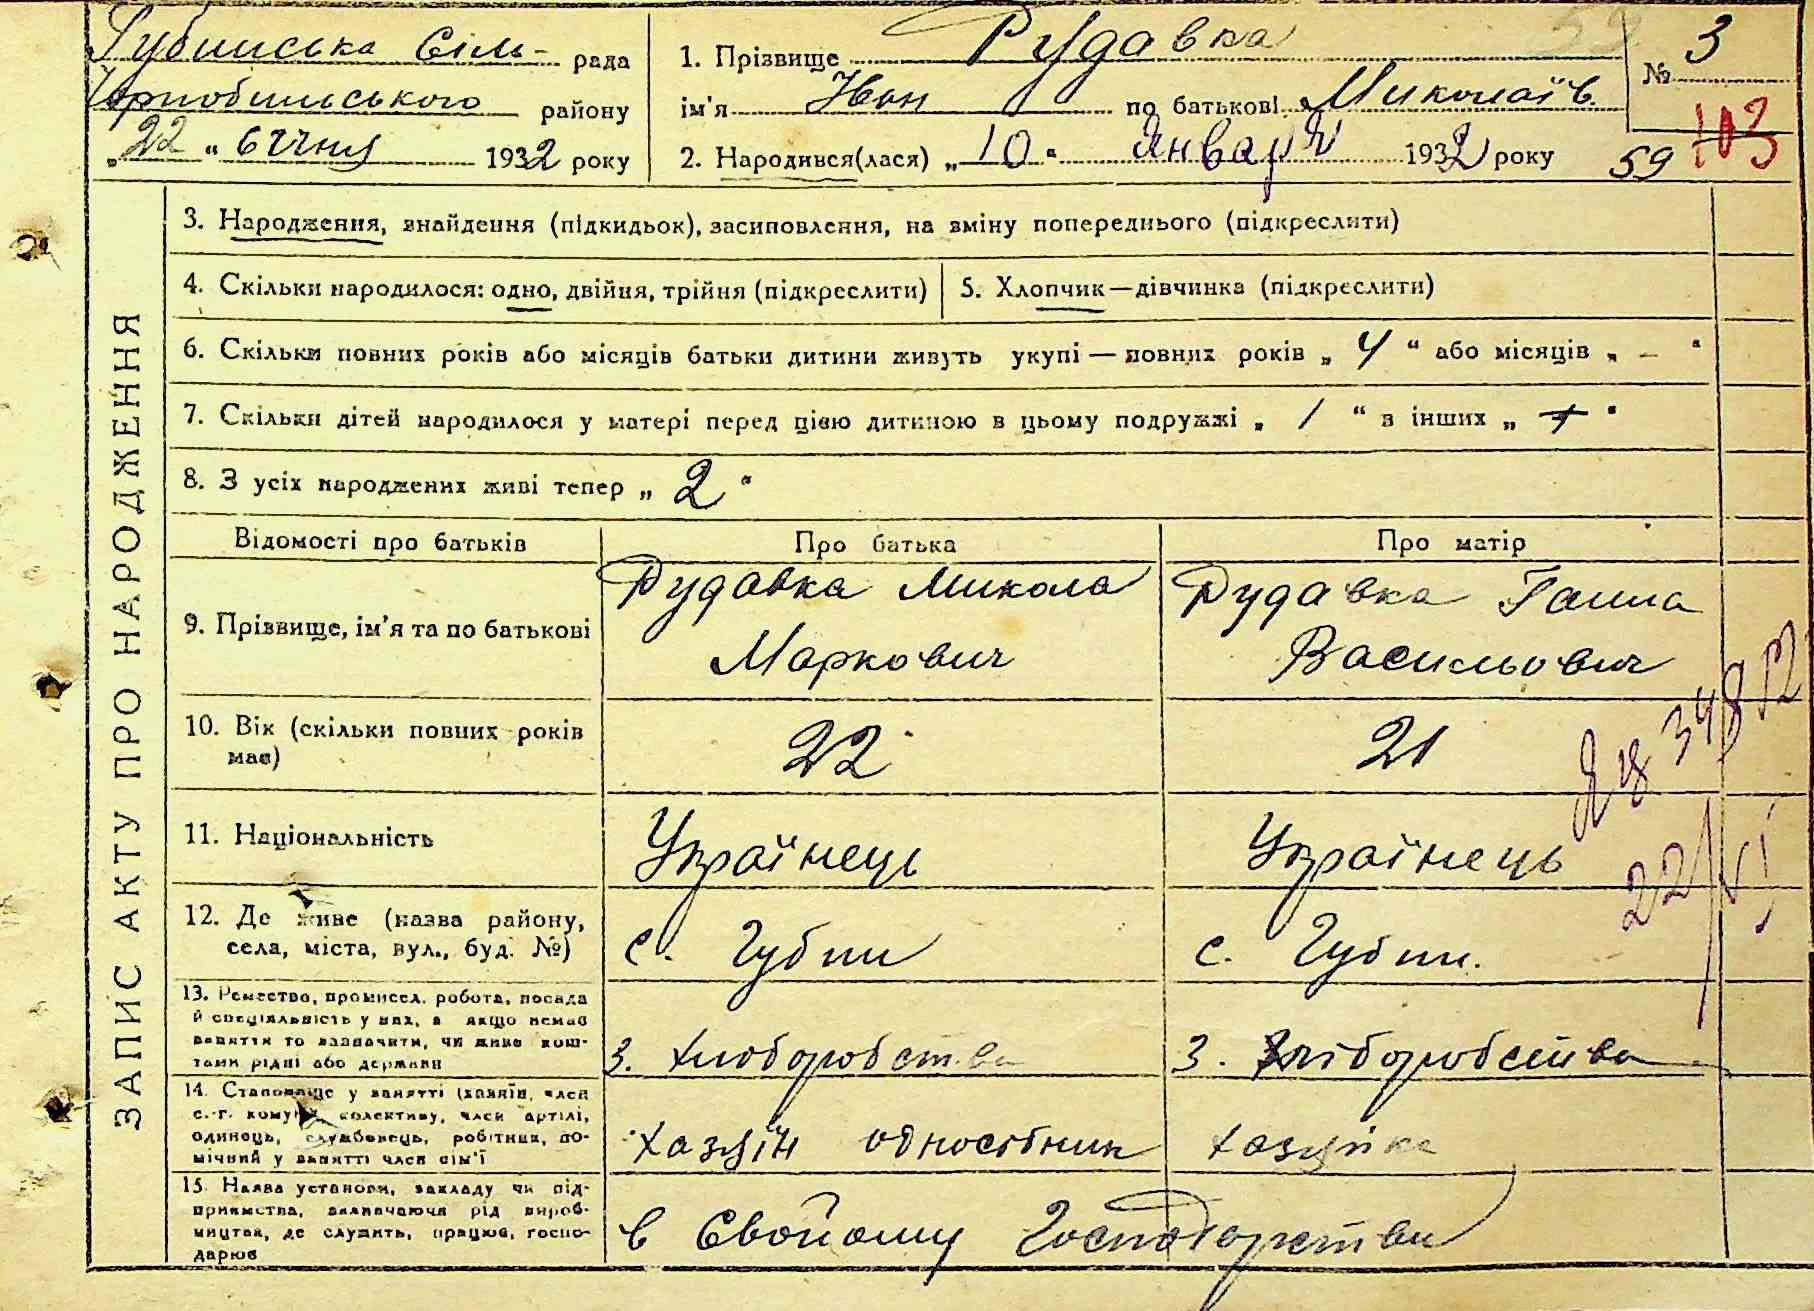 Губинська Сіль- рада
Чорнобильського району
„22“ січня 1932 року
1. Прізвище Рудавка
ім'я Иван по батькові Миколаїв.
2. Народився(лася) „10“ Января 1932 року
№ 3
103
59
ЗАПИС АКТУ ПРО НАРОДЖЕННЯ
3. Народження, знайдення (підкидьок), засиповлення, на зміну попереднього (підкреслити)
4. Скільки народилося: одно, двійня, трійня (підкреслити)
5. Хлопчик—дівчинка (підкреслити)
6. Скільки повних років або місяців батьки дитини живуть укупі — повних років „4“ або місяців „–“
7. Скільки дітей народилося у матері перед цією дитиною в цьому подружжі „1“ в інших „
8. З усіх народжених живі тепер „2“
Відомості про батьків Про батька Про матір
9. Прізвище, ім'я та по батькові
Рудавка Микола
Маркович
Рудавка Ганна
Васильович
10. Вік (скільки повних років
має)
22
21
11. Національність
Українець
Українець
12. Де живе (назва району,
села, міста, вул., буд. №)
с. Губин
с. Губин.
13. Ремество, промисел, робота, посада
й спеціяльність у них, а якщо немає
заняття то зазначити, чи живе кош-
тами рідні або держави
З. хлюборобства
З. хліборобства
14. Становище у занятті (хазяїн, член
с.-г. комуни, колективу, член артілі,
одинець, службовець, робітник, по-
мічний у занятті член сім'ї
хазяїн одноосібник
хазяйка
15. Назва установи, закладу чи під-
приємства, визначаючи рід вироб-
ництва, де служить, працює, госпо-
дарює
в Свойому Господарстви
22/VI